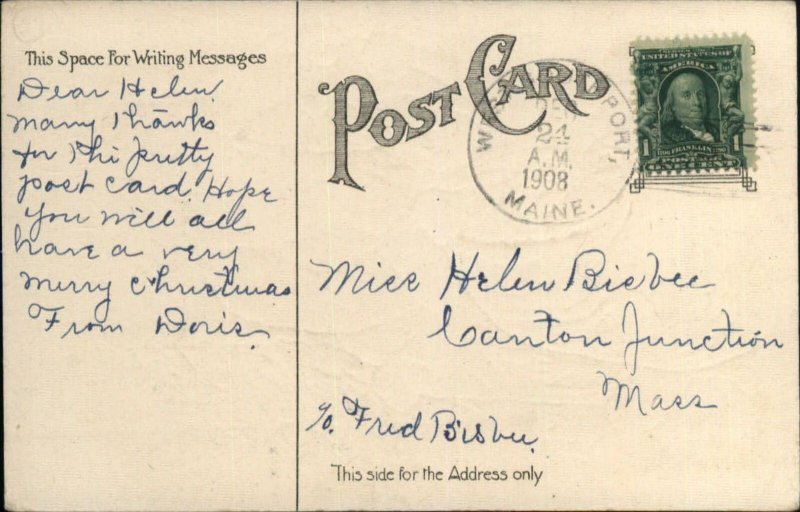 This Space For Writing Messages
Dear Helen.
Many Thanks
for the pretty
post card. Hope
you will all
have a very
merry Christmas
From Doris.
POST CARD
DEC
24
A.M.
1908
PORT,
MAINE.
UNITED STATES OF
AMERICA
1
FRANKLIN
POSTAGE
ONE CENT
1
Miss Helen Bisbee
Canton Junction
Mass
c/o. Fred Bisbee.
This side for the Address only